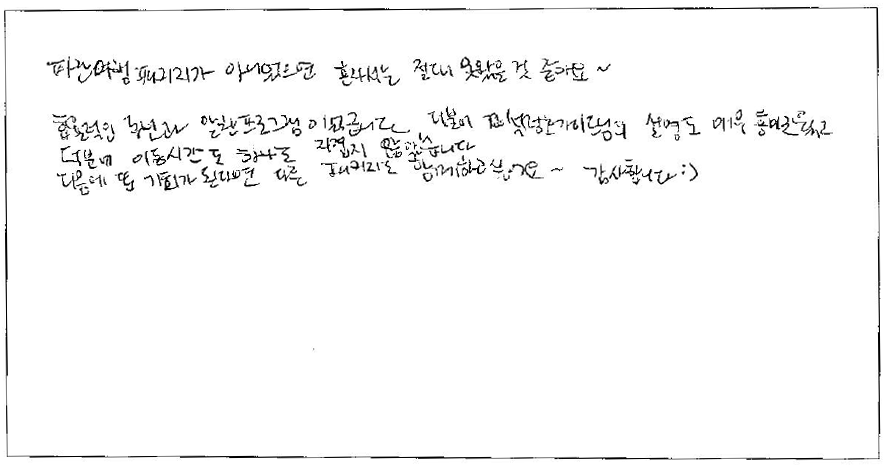 파란여행 패키지가 아니었으면 혼자서는 절대 못왔을 것 같아요 ~
효율적인 동선과 알찬프로그램이었습니다. 더불어 가이드님의 설명도 매우 흥미로웠고
덕분에 이동시간도 하나도 지겹지 않았습니다
다음에 또 기회가 된다면 다른 패키지도 함께하고싶어요 ~ 감사합니다 :)